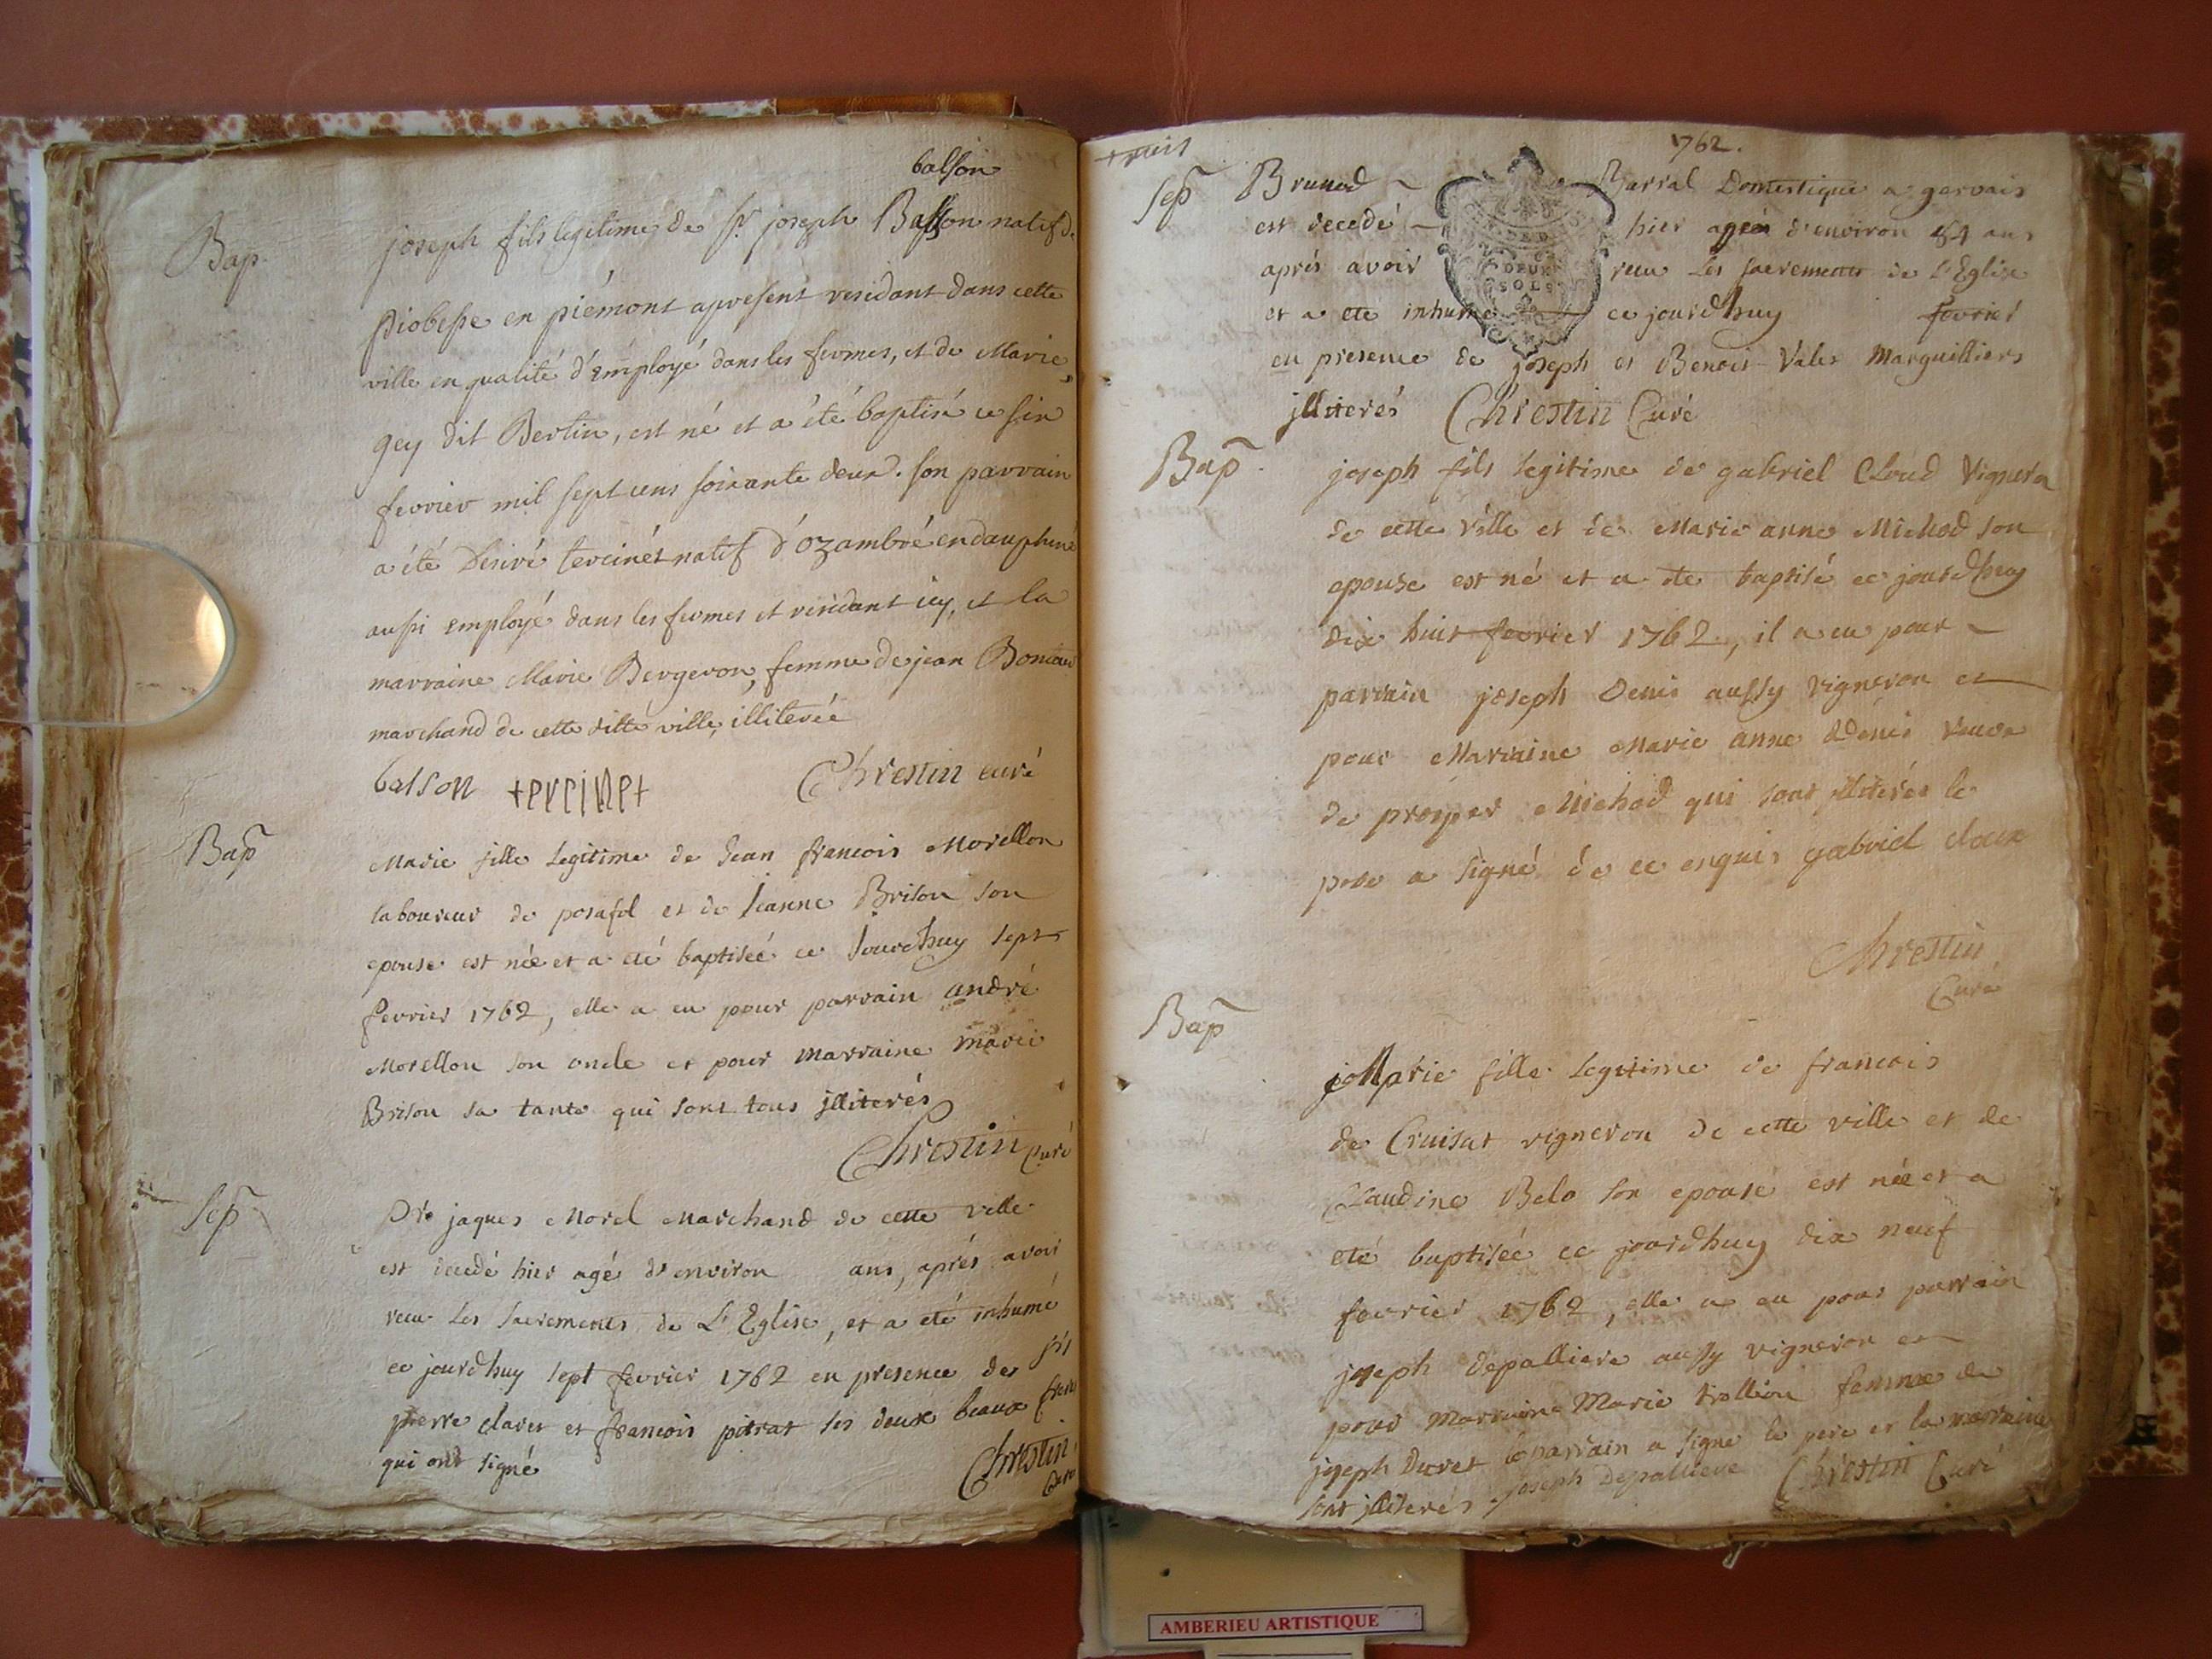 balson
Bap. joseph fils legitime de Sr joseph Balson natif de
Piobesse en piémont apresent residant dans cette
ville en qualité d'Employé dans les fermes, et de Marie
gey dit Bertin, est né et a été baptisé ce six
fevrier mil sept cens soixante deux. son parrain
a été Desiré tercinet natif d'ozambré en dauphiné
aussi employé dans les fermes et residant icy, et la
marraine Marie Bergeron, femme de jean
marchand de cette ditte ville, illiterée
balson tercinet Chrestin curé
Bap Marie fille legitime de Jean francois Morellon
laboureur de posafol et de Jeanne Brison son
epouse est née et a eté baptisée ce Jourdhuy sept
fevrier 1762, elle a eu pour parrain andré
Morellon son oncle et pour marraine marie
Brison sa tante qui sont tous jlliterés
Chrestin Curé
Sep jaques Morel Marchand de cette ville
est decedé hier agé d'environ ans, aprés avoir
recu les sacrements de L'Eglise, et a eté inhumé
ce jourdhuy sept fevrier 1762 en presence des srs
pierre claret et francois pitrat ses deux beaux freres
qui ont signé Chrestin
Curé
1762.
Sep Brunod ~ Barral Domestique a gervais
est decedé ~ hier ageé d'environ 54 ans
aprés avoir recu les sacrements de L'Eglise
et a ete inhumé ce jourdhuy fevrier
en presence de joseph et Benoit Valer Marguilliers
jlliterés Chrestin Curé
DEUX
SOLS
Bap joseph fils legitime de gabriel Cloud Vigneron
de cette ville et de Marie anne Michod son
epouse est né et a ete baptisé ce jourdhuy
dix huit fevrier 1762, il a eu pour ~
parrain joseph Denis aussy vigneron et
pour Marraine Marie anne Denis veuve
de prosper Michod qui sont jlliterés le
pere a signé de ce enquis gabriel cloux
Chrestin
Curé
Bap Marie fille legitime de francois
de Cruisat vigneron de cette ville et de
Claudine Belo son epouse est née et a
eté baptisée ce jourdhuy dix neuf
fevrier 1762, elle a eu pour parrain
joseph depalliere aussy vigneron et
pour marraine Marie trollion femme de
joseph Ducret le parrain a signe le pere et la marraine
sont jlliterés. joseph depalliere Chrestin Curé
AMBERIEU ARTISTIQUE